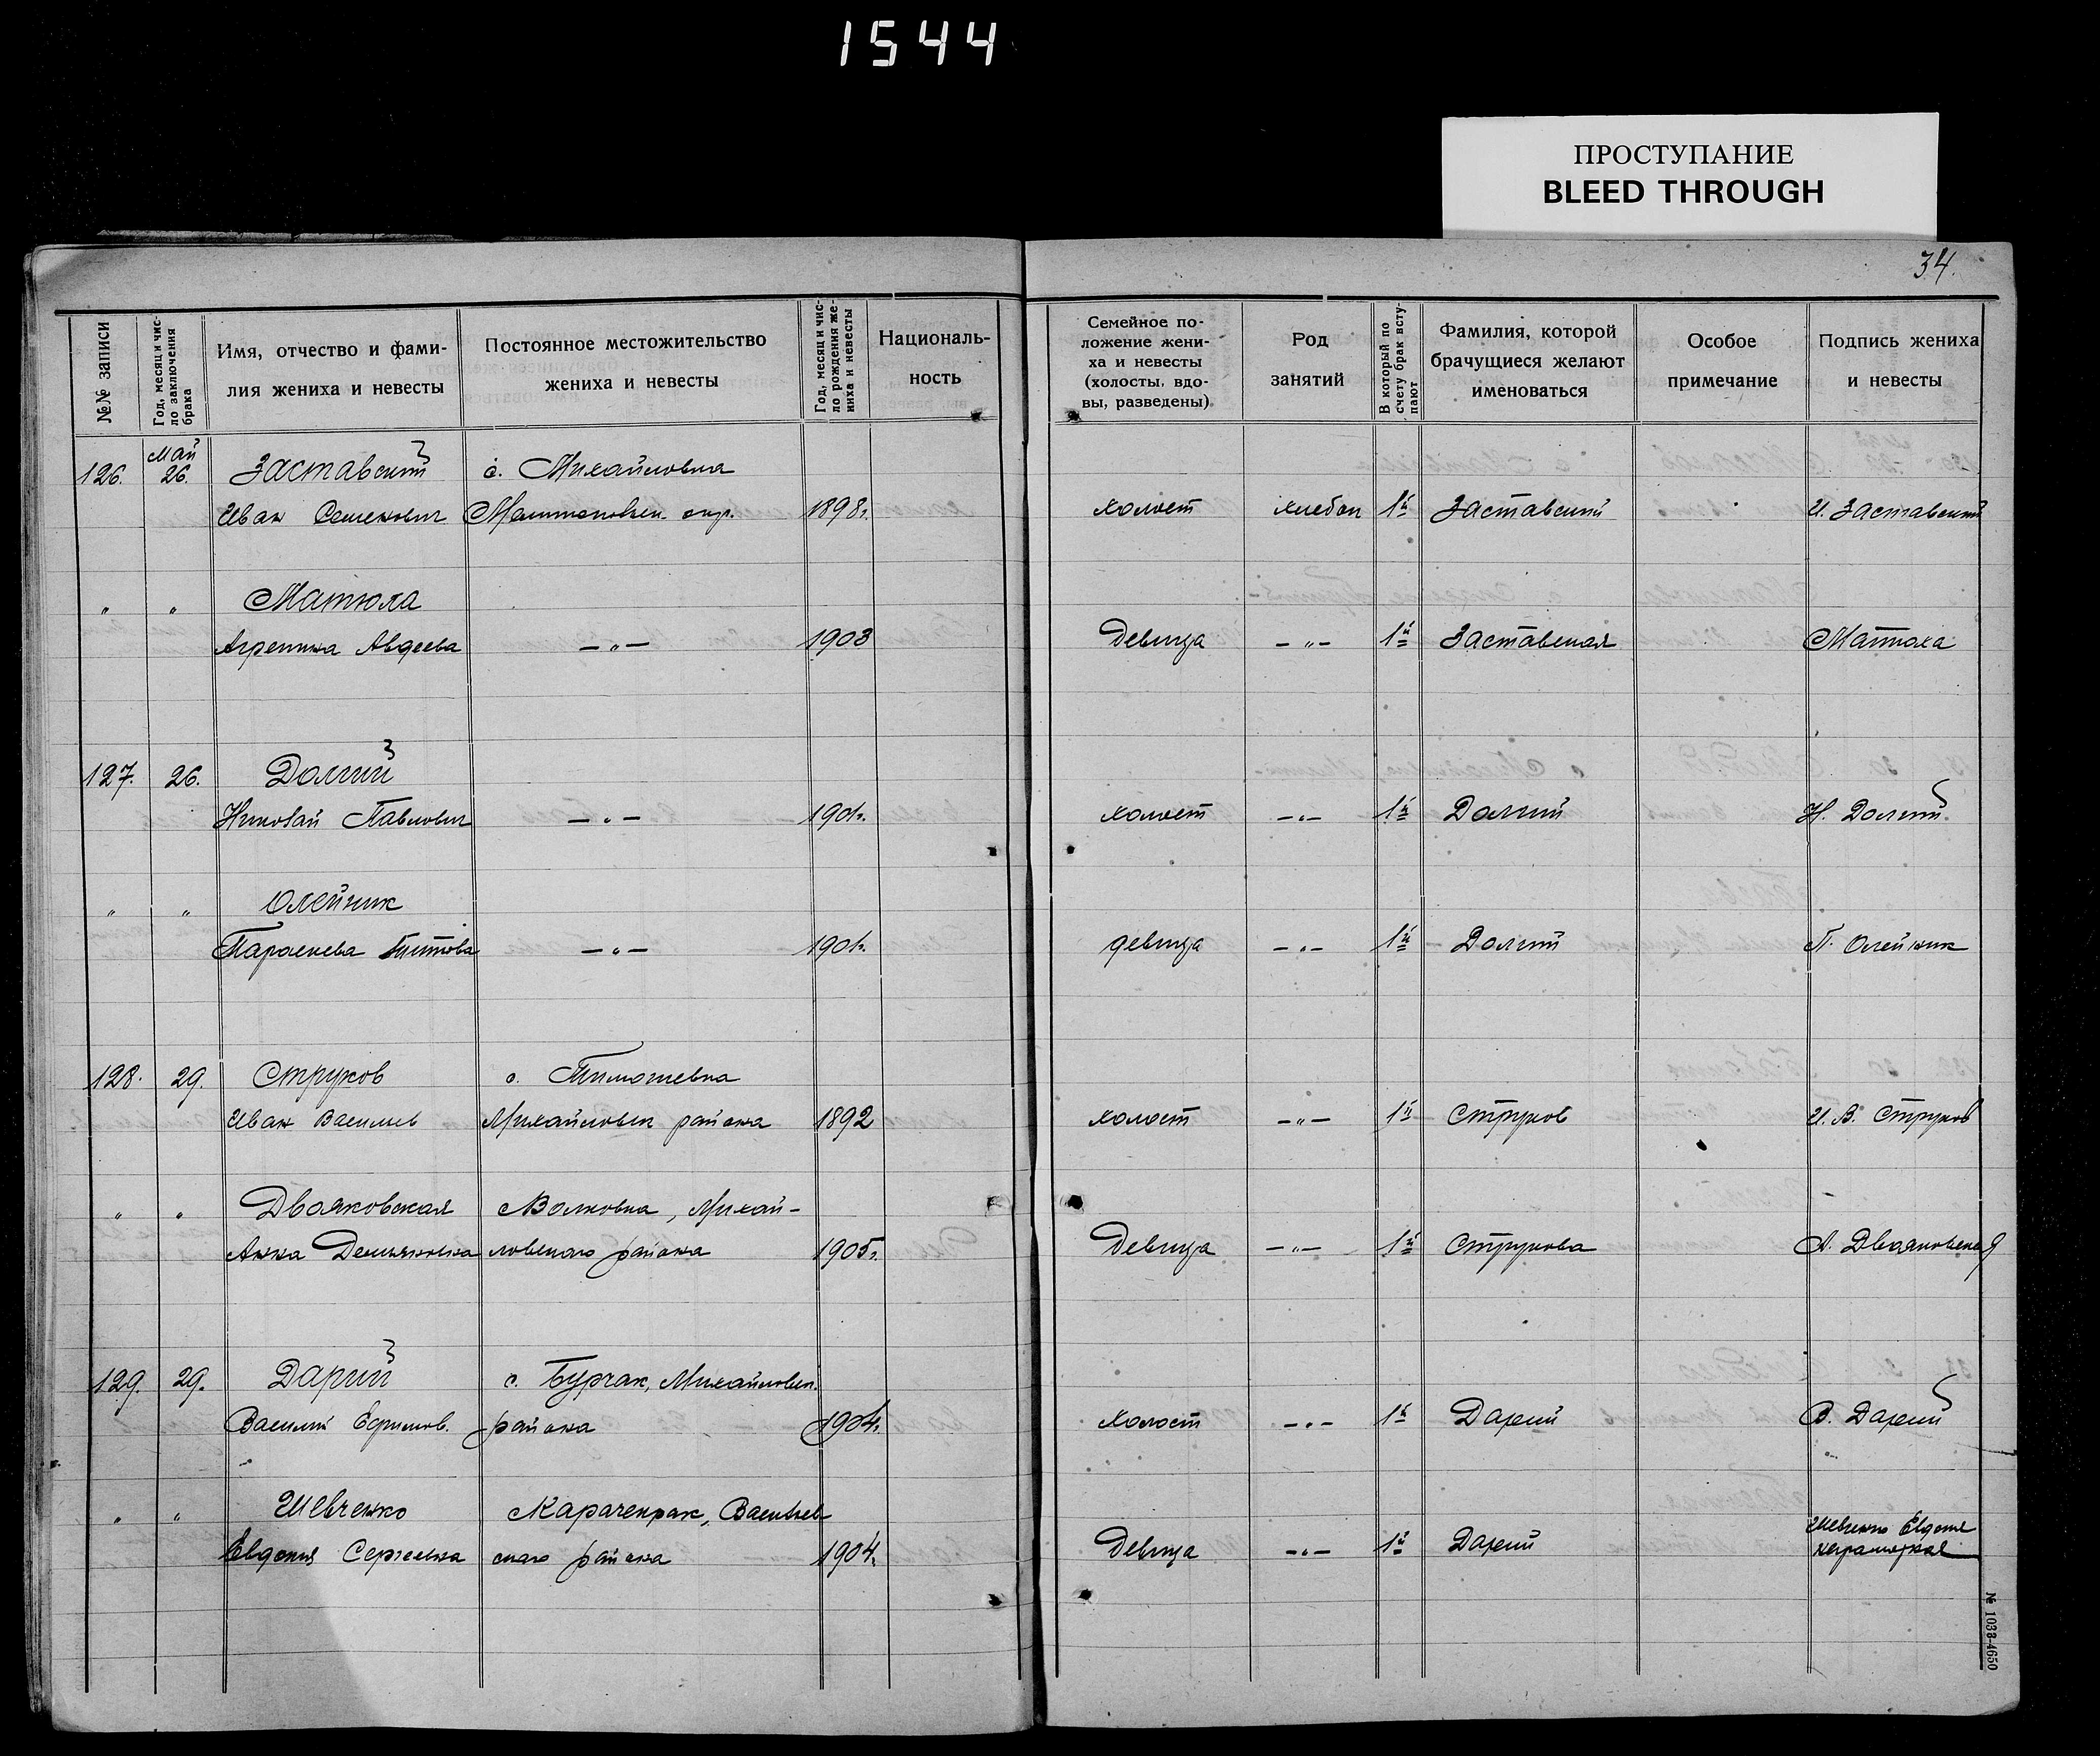 1544
ПРОСТУПАНИЕ
BLEED THROUGH
34.
№№ записи
Год, месяц и чис-
ло заключения
брака
Имя, отчество и фами-
лия жениха и невесты
Постоянное местожительство
жениха и невесты
Год, месяц и чис-
ло рождения же-
ниха и невесты
Националь-
ность
Семейное по-
ложение жени-
ха и невесты
(холосты, вдо-
вы, разведены)
Род
занятий
В который по
счету брак всту-
пают
Фамилия, которой
брачущиеся желают
именоваться
Особое
примечание
Подпись жениха
и невесты
Май
126. 26. Заставский с. Михайловка
Иван Семенович окр. 1898г. холост хлебоп 1й Заставский И. Заставский
" " Матюха
Агрепина Авдеева — " — 1903 Девица — " — 1й Заставская Матюха
127. 26. Долгий
Николай Павлович — " — 1901г. холост — " — 1й Долгий Н. Долгий
" " Олейник
Титова — " — 1901г. девица — " — 1й Долгий П. Олейник
128. 29. Струков с. Тимошевка
Иван Васильев Михайловск района 1892 холост — " — 1й Струков И. В. Струков
" " Двояковская Волковка, Михай-
Анна Демьяновна ловского района 1905г. Девица — " — 1й Струкова А. Двояковская
129. 29. Дарий с. Бурчак, Михайловск.
Василий Ефимов. района 1904г. холост — " — 1й Дарий В. Дарий
" " Шевченко Карачекрак, Васильев
Евдокия Сергеевна ского района 1904г. Девица — " — 1й Дарий Шевченко Евдокия
неграмотная
№ 1038-4650